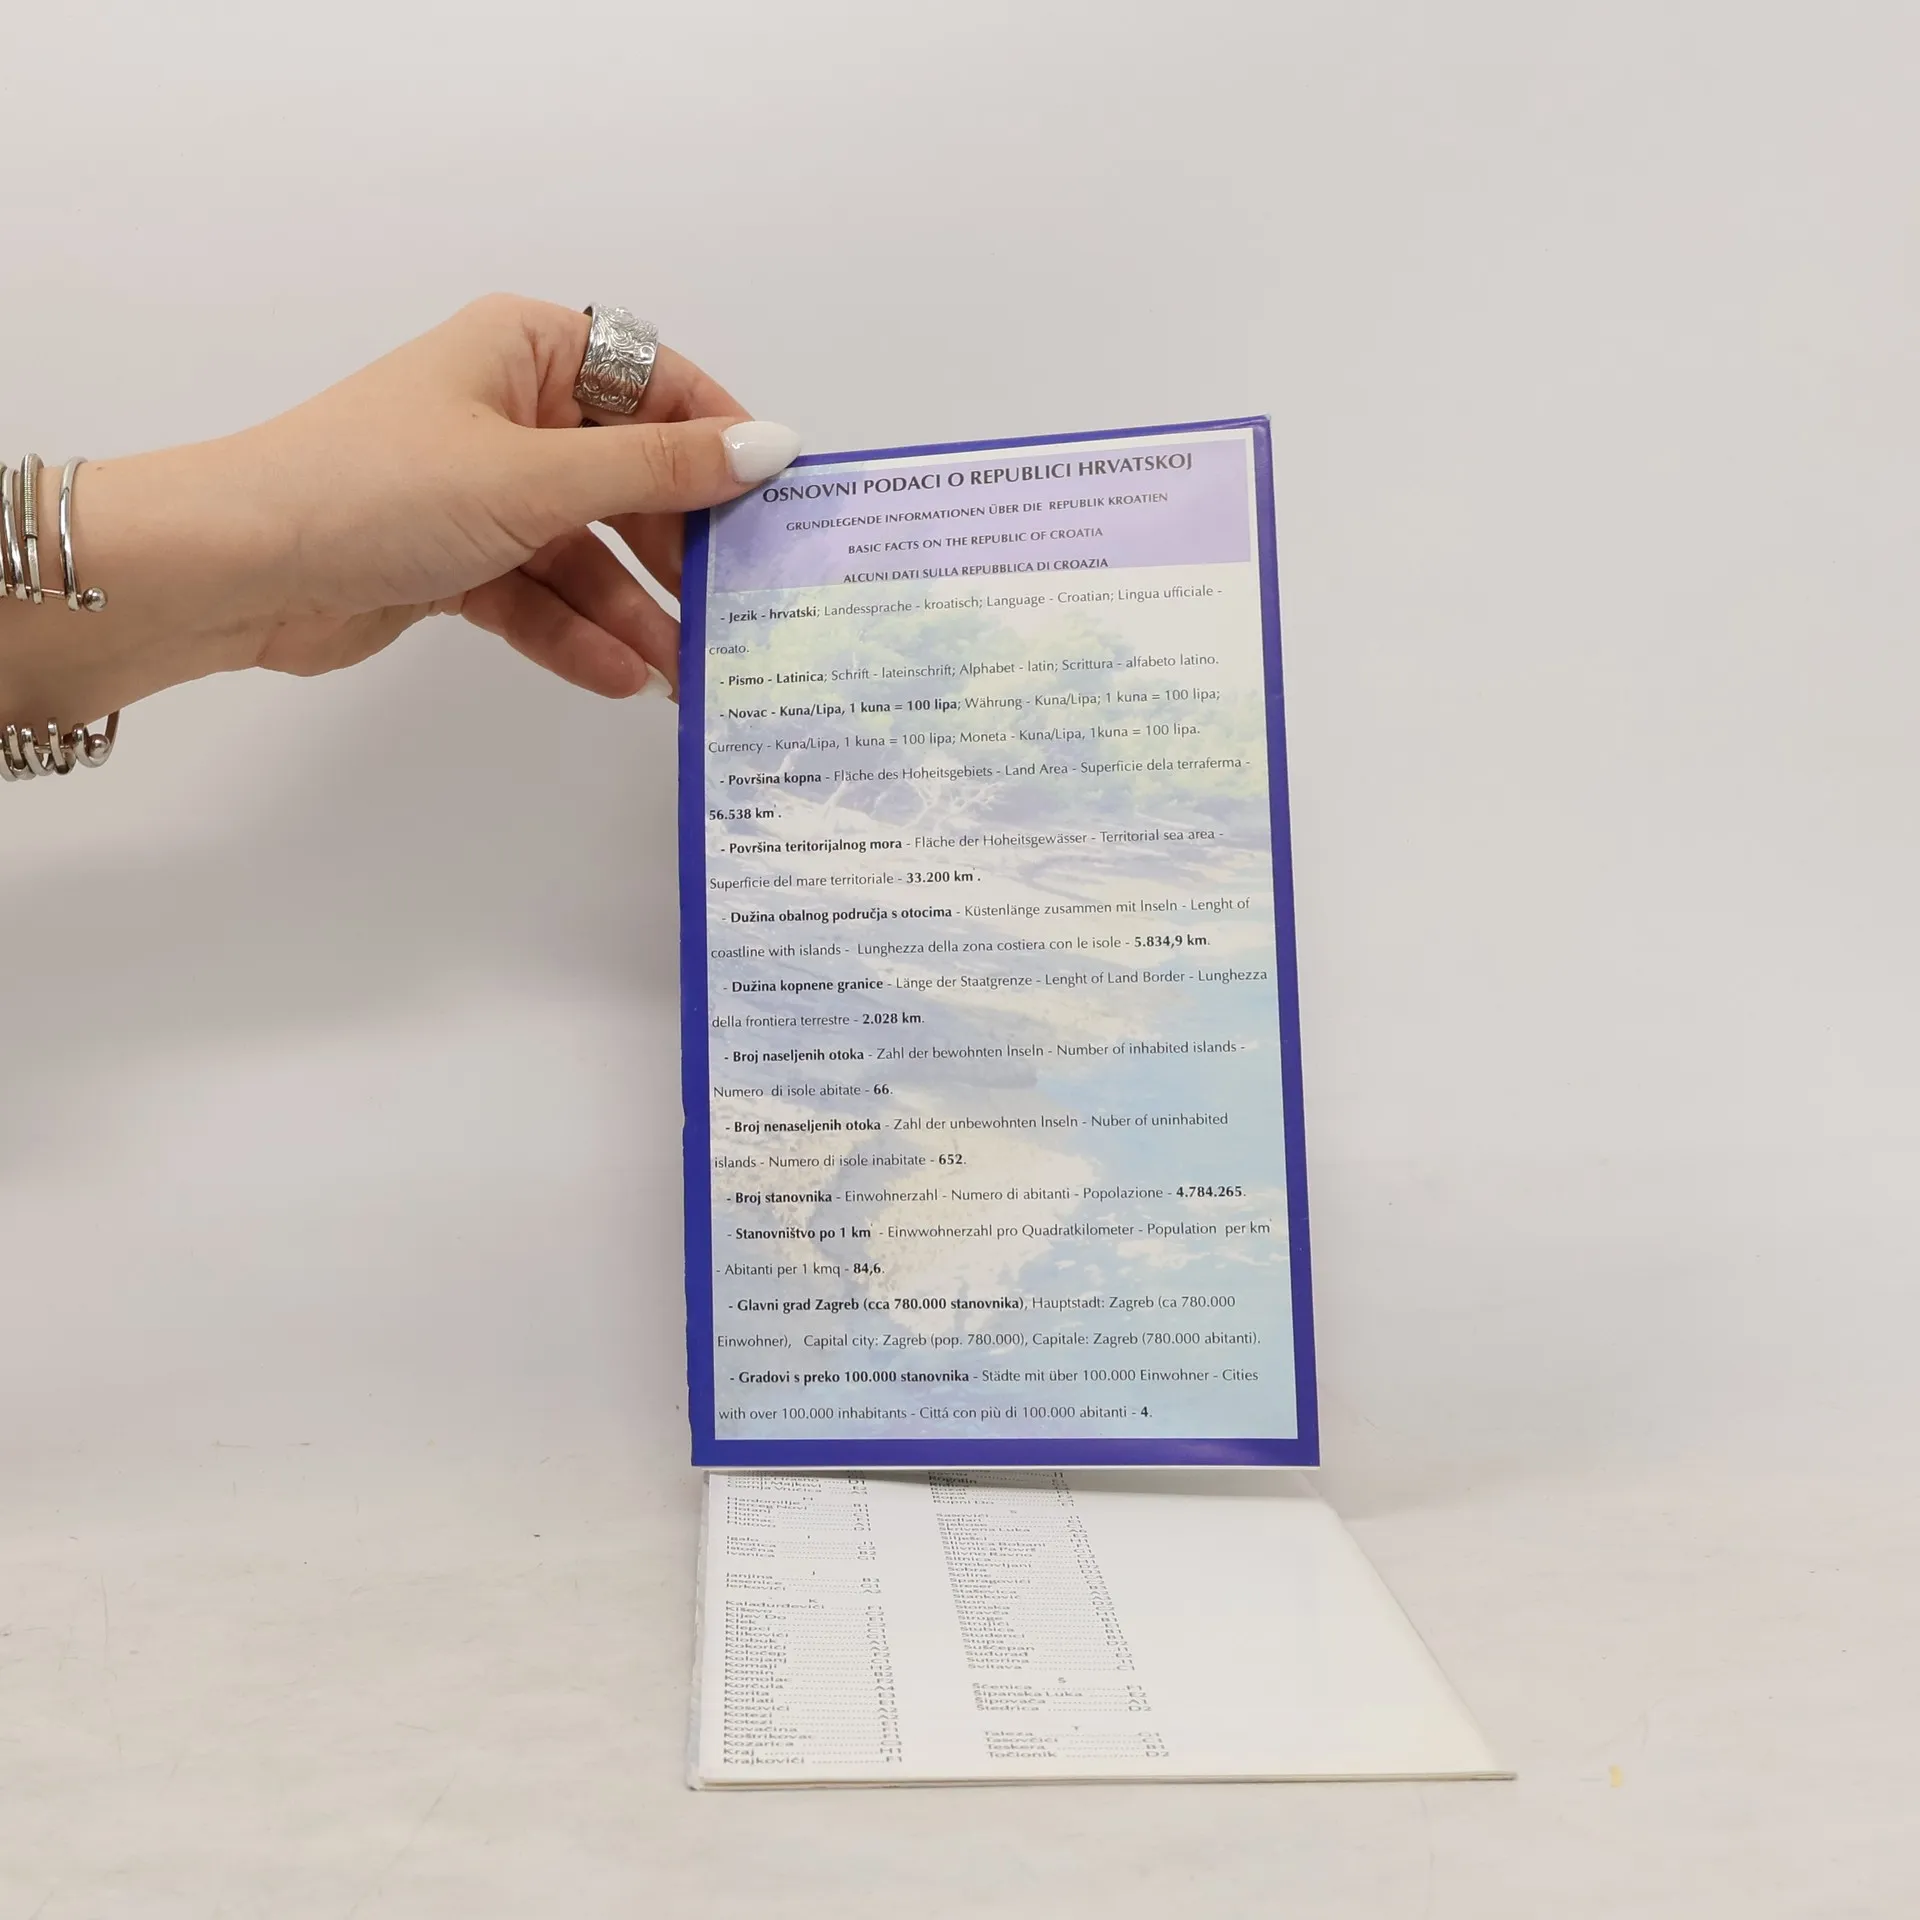 OSNOVNI PODACI O REPUBLICI HRVATSKOJ
GRUNDLEGENDE INFORMATIONEN ÜBER DIE REPUBLIK KROATIEN
BASIC FACTS ON THE REPUBLIC OF CROATIA
ALCUNI DATI SULLA REPUBBLICA DI CROAZIA
- Jezik - hrvatski; Landessprache - kroatisch; Language - Croatian; Lingua ufficiale -
croato.
- Pismo - Latinica; Schrift - lateinschrift; Alphabet - latin; Scrittura - alfabeto latino.
- Novac - Kuna/Lipa, 1 kuna = 100 lipa; Währung - Kuna/Lipa; 1 kuna = 100 lipa;
Currency - Kuna/Lipa, 1 kuna = 100 lipa; Moneta - Kuna/Lipa, 1kuna = 100 lipa.
- Površina kopna - Fläche des Hoheitsgebiets - Land Area - Superficie dela terraferma -
56.538 km².
- Površina teritorijalnog mora - Fläche der Hoheitsgewässer - Territorial sea area -
Superficie del mare territoriale - 33.200 km².
- Dužina obalnog područja s otocima - Küstenlänge zusammen mit Inseln - Lenght of
coastline with islands - Lunghezza della zona costiera con le isole - 5.834,9 km.
- Dužina kopnene granice - Länge der Staatgrenze - Lenght of Land Border - Lunghezza
della frontiera terrestre - 2.028 km.
- Broj naseljenih otoka - Zahl der bewohnten Inseln - Number of inhabited islands -
Numero di isole abitate - 66.
- Broj nenaseljenih otoka - Zahl der unbewohnten Inseln - Nuber of uninhabited
islands - Numero di isole inabitate - 652.
- Broj stanovnika - Einwohnerzahl - Numero di abitanti - Popolazione - 4.784.265.
- Stanovništvo po 1 km² - Einwwohnerzahl pro Quadratkilometer - Population per km²
- Abitanti per 1 kmq - 84,6.
- Glavni grad Zagreb (cca 780.000 stanovnika), Hauptstadt: Zagreb (ca 780.000
Einwohner), Capital city: Zagreb (pop. 780.000), Capitale: Zagreb (780.000 abitanti).
- Gradovi s preko 100.000 stanovnika - Städte mit über 100.000 Einwohner - Cities
with over 100.000 inhabitants - Cittá con più di 100.000 abitanti - 4.
Gornji Majkovi
H
Herceg Novi
Hum
Hutovo
Ivanica
Janjina
Jasenice
Jerkovići
K
Kaladurdevići
Kiševo
Kijev Do
Klek
Klepci
Klikovići
Klobuk
Kokorići
Koločep
Komaji
Komin
Komolac
Korčula
Korita
Korlati
Kosovići
Kotezi
Kotezi
Kovačina
Kozarica
Kraj ........ H1
Krajkovići ........ F1
Rogotin
Rupni Do
S
Sasovići
Skrivena Luka
Slano
Slivnica Bobani
Slivno Ravno
Smokovljani
Sobra
Soline
Sparagovići
Sreser
Staševica
Ston
Stonska
Stravča
Struge
Strujići
Stubica
Studenci
Stupa
Suđurađ
Sutorina
Svitava
Š
Šćenica ........ F1
Šipanska Luka ........ E2
Šipovača ........ A1
Štedrica ........ D2
T
Taleža ........ G1
Tasovčići ........ C1
Teskera ........ B1
Točionik ........ D2